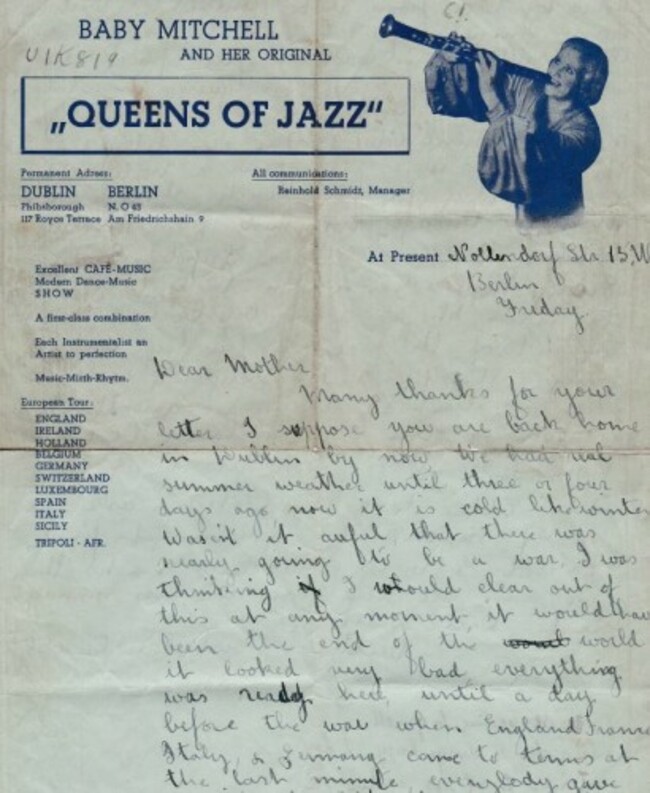 BABY MITCHELL
AND HER ORIGINAL
U1K819
„QUEENS OF JAZZ“
Permanent Adress:
DUBLIN BERLIN
Phibsborough N.O 43
117 Royce Terrace Am Friedrichshain 9
All communications:
Reinhold Schmidt, Manager
At Present Nollendorf Str. 13, W
Berlin
Friday
Excellent CAFÉ-MUSIC
Modern Dance-Music
SHOW
A first-class combination
Each Instrumentalist an
Artist to perfection
Music-Mirth-Rhytm.
European Tour:
ENGLAND
IRELAND
HOLLAND
BELGIUM
GERMANY
SWITZERLAND
LUXEMBOURG
SPAIN
ITALY
SICILY
TRIPOLI - AFR.
Dear Mother
Many thanks for your
letter I suppose you are back home
in Dublin by now We had real
summer weather until three or four
days ago now it is cold like winter
Wasn't it awful that there was
nearly going to be a war, I was
thinking if I would clear out of
this at any moment it would hav
been the end of the world
it looked very bad everything
was ready here, until a day
before the war when England France
Italy & Germany came to terms at
the last minute everybody gave